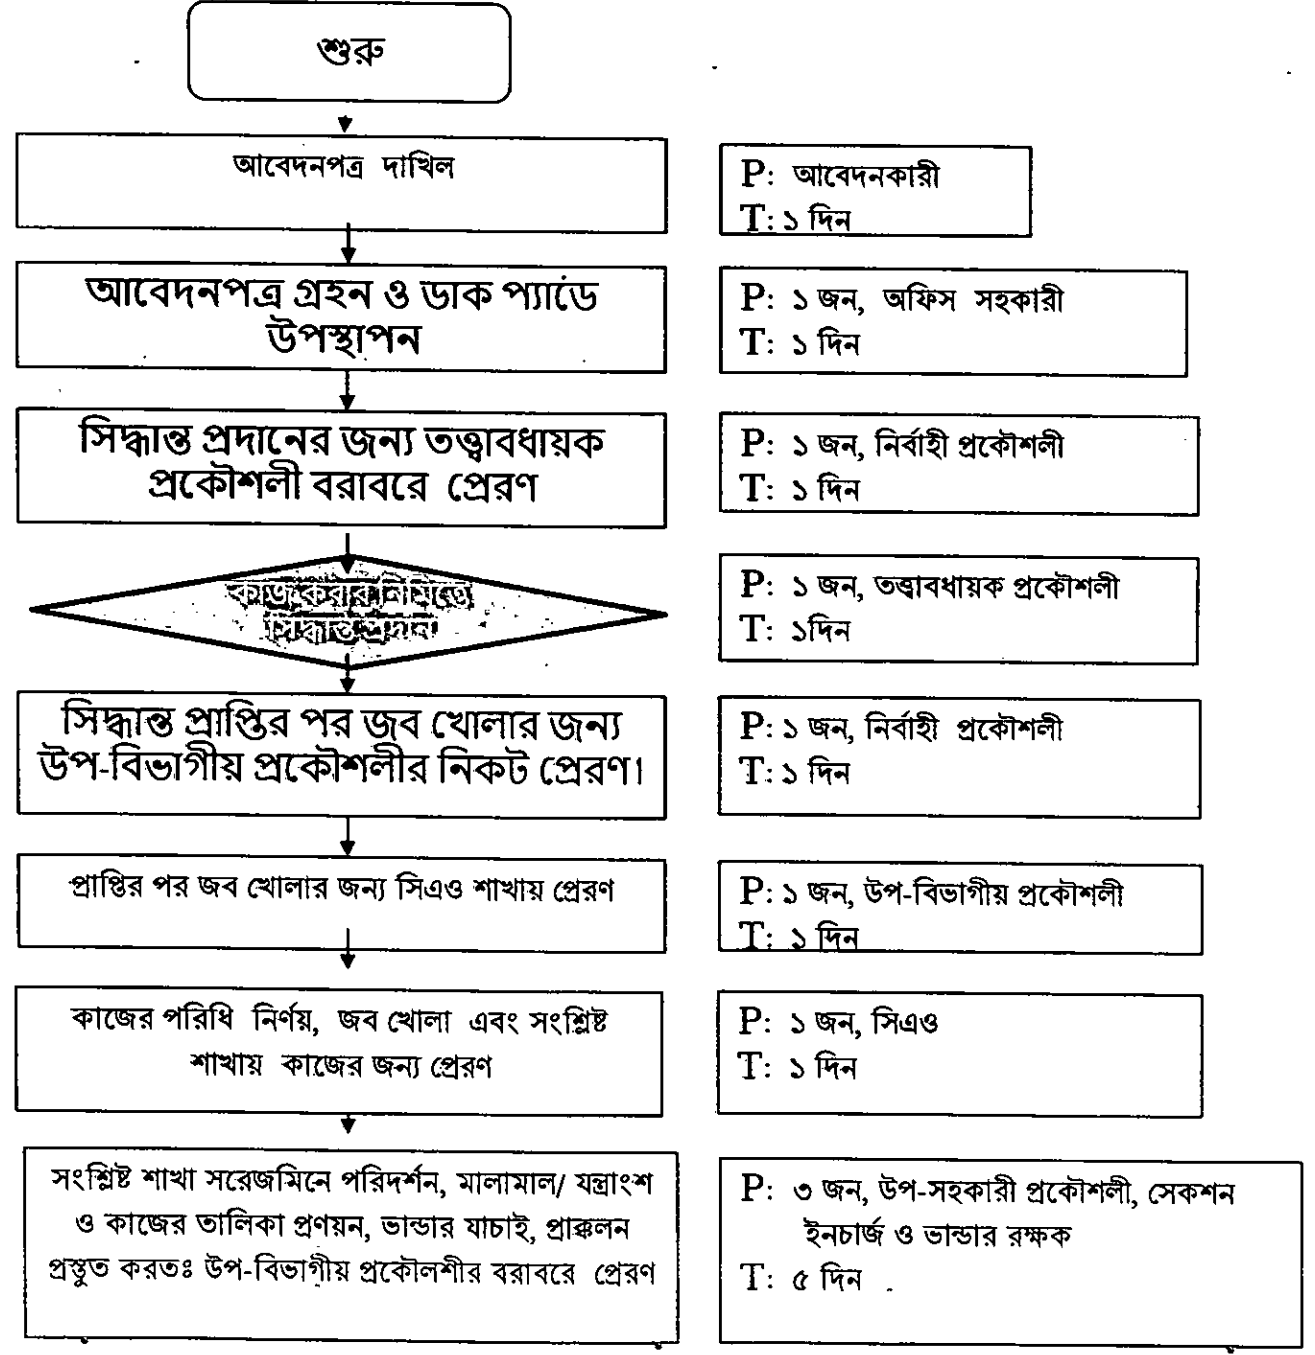 শুরু
আবেদনপত্র দাখিল
P: আবেদনকারী
T: ১ দিন
আবেদনপত্র গ্রহন ও ডাক প্যাডে
উপস্থাপন
P: ১ জন, অফিস সহকারী
T: ১ দিন
সিদ্ধান্ত প্রদানের জন্য তত্ত্বাবধায়ক
প্রকৌশলী বরাবরে প্রেরণ
P: ১ জন, নির্বাহী প্রকৌশলী
T: ১ দিন
কাজ করার নিমিত্তে
সিদ্ধান্ত প্রদান
P: ১ জন, তত্ত্বাবধায়ক প্রকৌশলী
T: ১দিন
সিদ্ধান্ত প্রাপ্তির পর জব খোলার জন্য
উপ-বিভাগীয় প্রকৌশলীর নিকট প্রেরণ।
P: ১ জন, নির্বাহী প্রকৌশলী
T: ১ দিন
প্রাপ্তির পর জব খোলার জন্য সিএও শাখায় প্রেরণ
P: ১ জন, উপ-বিভাগীয় প্রকৌশলী
T: ১ দিন
কাজের পরিধি নির্ণয়, জব খোলা এবং সংশ্লিষ্ট
শাখায় কাজের জন্য প্রেরণ
P: ১ জন, সিএও
T: ১ দিন
সংশ্লিষ্ট শাখা সরেজমিনে পরিদর্শন, মালামাল/ যন্ত্রাংশ
ও কাজের তালিকা প্রণয়ন, ভান্ডার যাচাই, প্রাক্কলন
প্রস্তুত করতঃ উপ-বিভাগীয় প্রকৌলশীর বরাবরে প্রেরণ
P: ৩ জন, উপ-সহকারী প্রকৌশলী, সেকশন
ইনচার্জ ও ভান্ডার রক্ষক
T: ৫ দিন